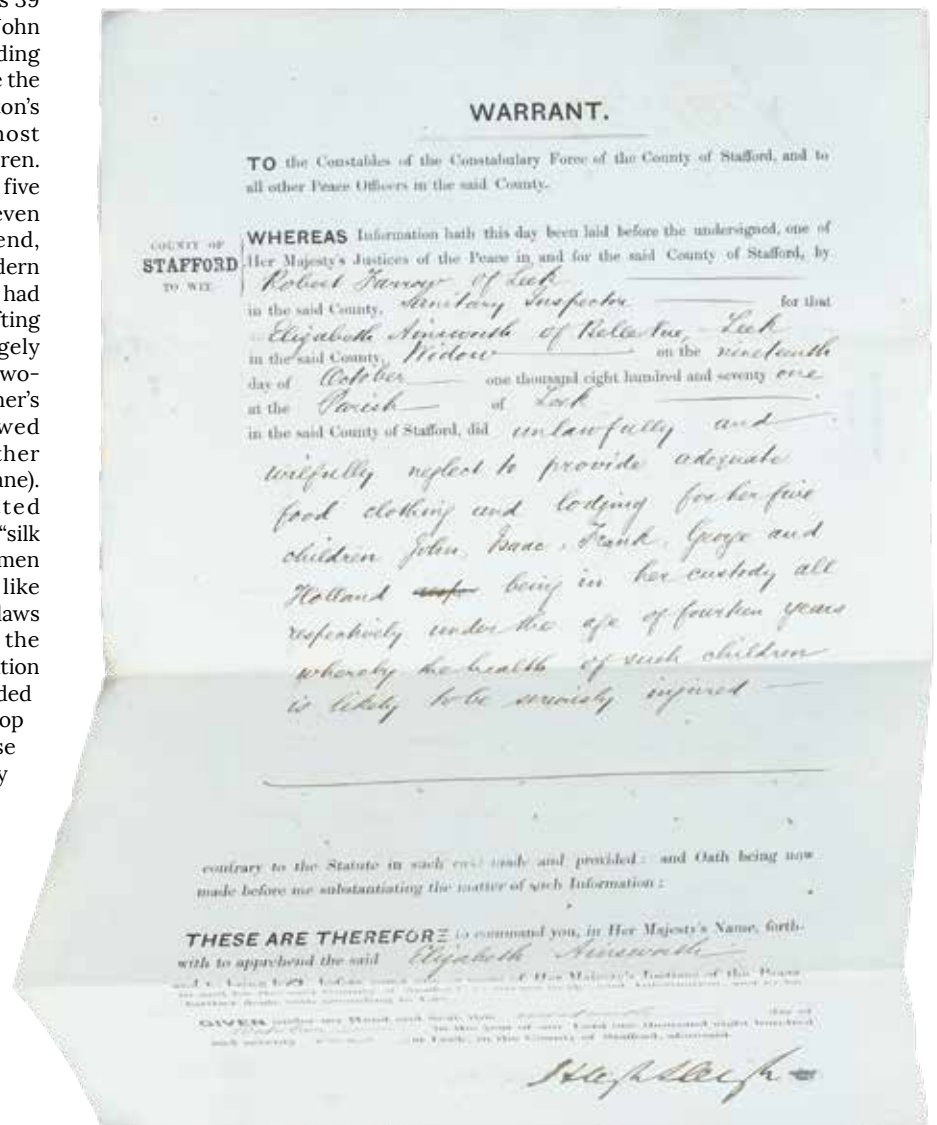 39
John
ding
the
on's
most
ren.
five
even
end,
dern
had
fting
gely
two-
ner's
wed
ther
ane).
ted
“silk
men
like
laws
the
tion
ded
op
se
y
WARRANT.
TO the Constables of the Constabulary Force of the County of Stafford, and to
all other Peace Officers in the said County.
COUNTY OF
STAFFORD
TO WIT.
WHEREAS Information hath this day been laid before the undersigned, one of
Her Majesty's Justices of the Peace in and for the said County of Stafford, by
Robert Farrow of Leek
in the said County, Sanitary Inspector for that
Elizabeth Ainsworth of Belle Vue, Leek
in the said County, Widow on the nineteenth
day of October one thousand eight hundred and seventy one
at the Parish of Leek
in the said County of Stafford, did unlawfully and
wilfully neglect to provide adequate
food clothing and lodging for her five
children John, Isaac, Frank, George and
Holland being in her custody all
respectively under the age of fourteen years
whereby the health of such children
is likely to be seriously injured
contrary to the Statute in such case made and provided: and Oath being now
made before me substantiating the matter of such Information:
THESE ARE THEREFORE to command you, in Her Majesty's Name, forth-
with to apprehend the said Elizabeth Ainsworth
of Her Majesty's Justices of the Peace
GIVEN under my Hand and Seal this day of
in the year of our Lord one thousand eight hundred
and seventy at Leek, in the County of Stafford, aforesaid.